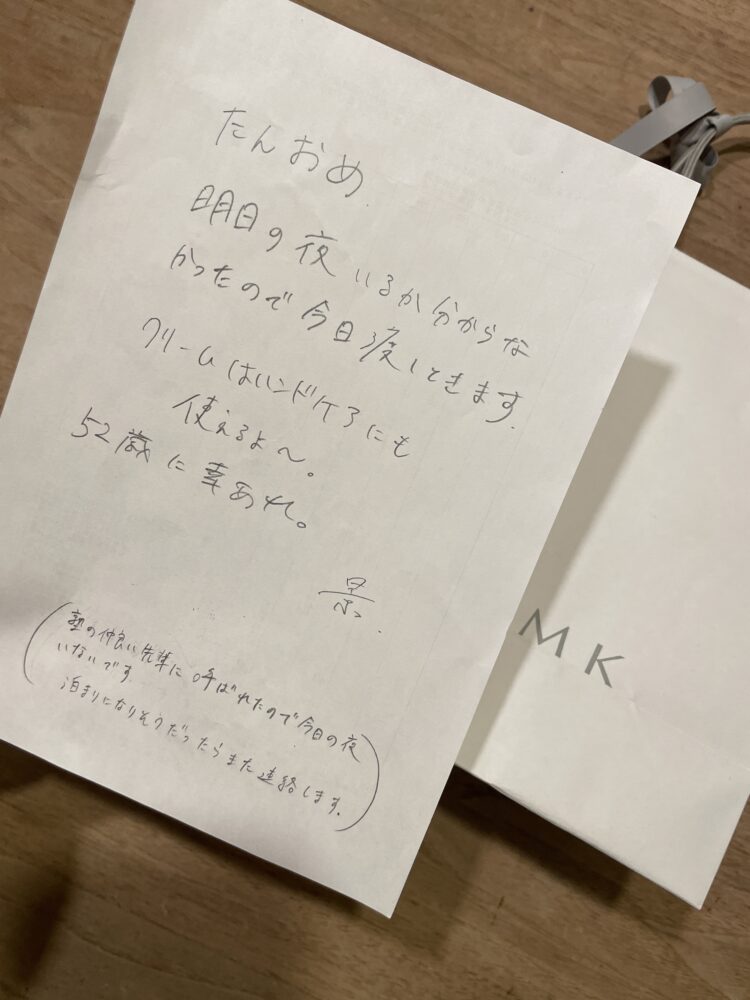 たんおめ
明日の夜いるか分からな
かったので今日渡しときます.
クリームはハンドケアにも
使えるよ〜。
52歳に幸あれ。
景.
(塾の仲良い先輩に呼ばれたので今日の夜
いないです.
泊まりになりそうだったらまた連絡します.)
MK